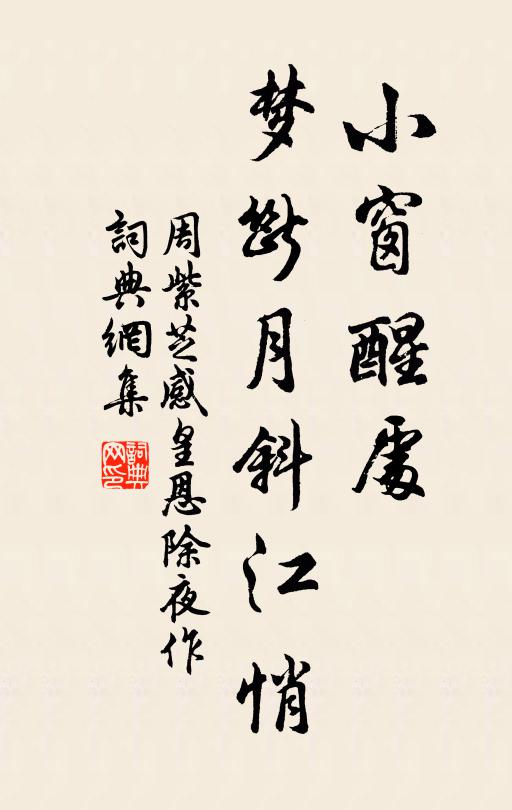 小窗醒處
梦斷月斜江悄
周紫芝感皇恩除夜作
詞典網集
詞典
网印